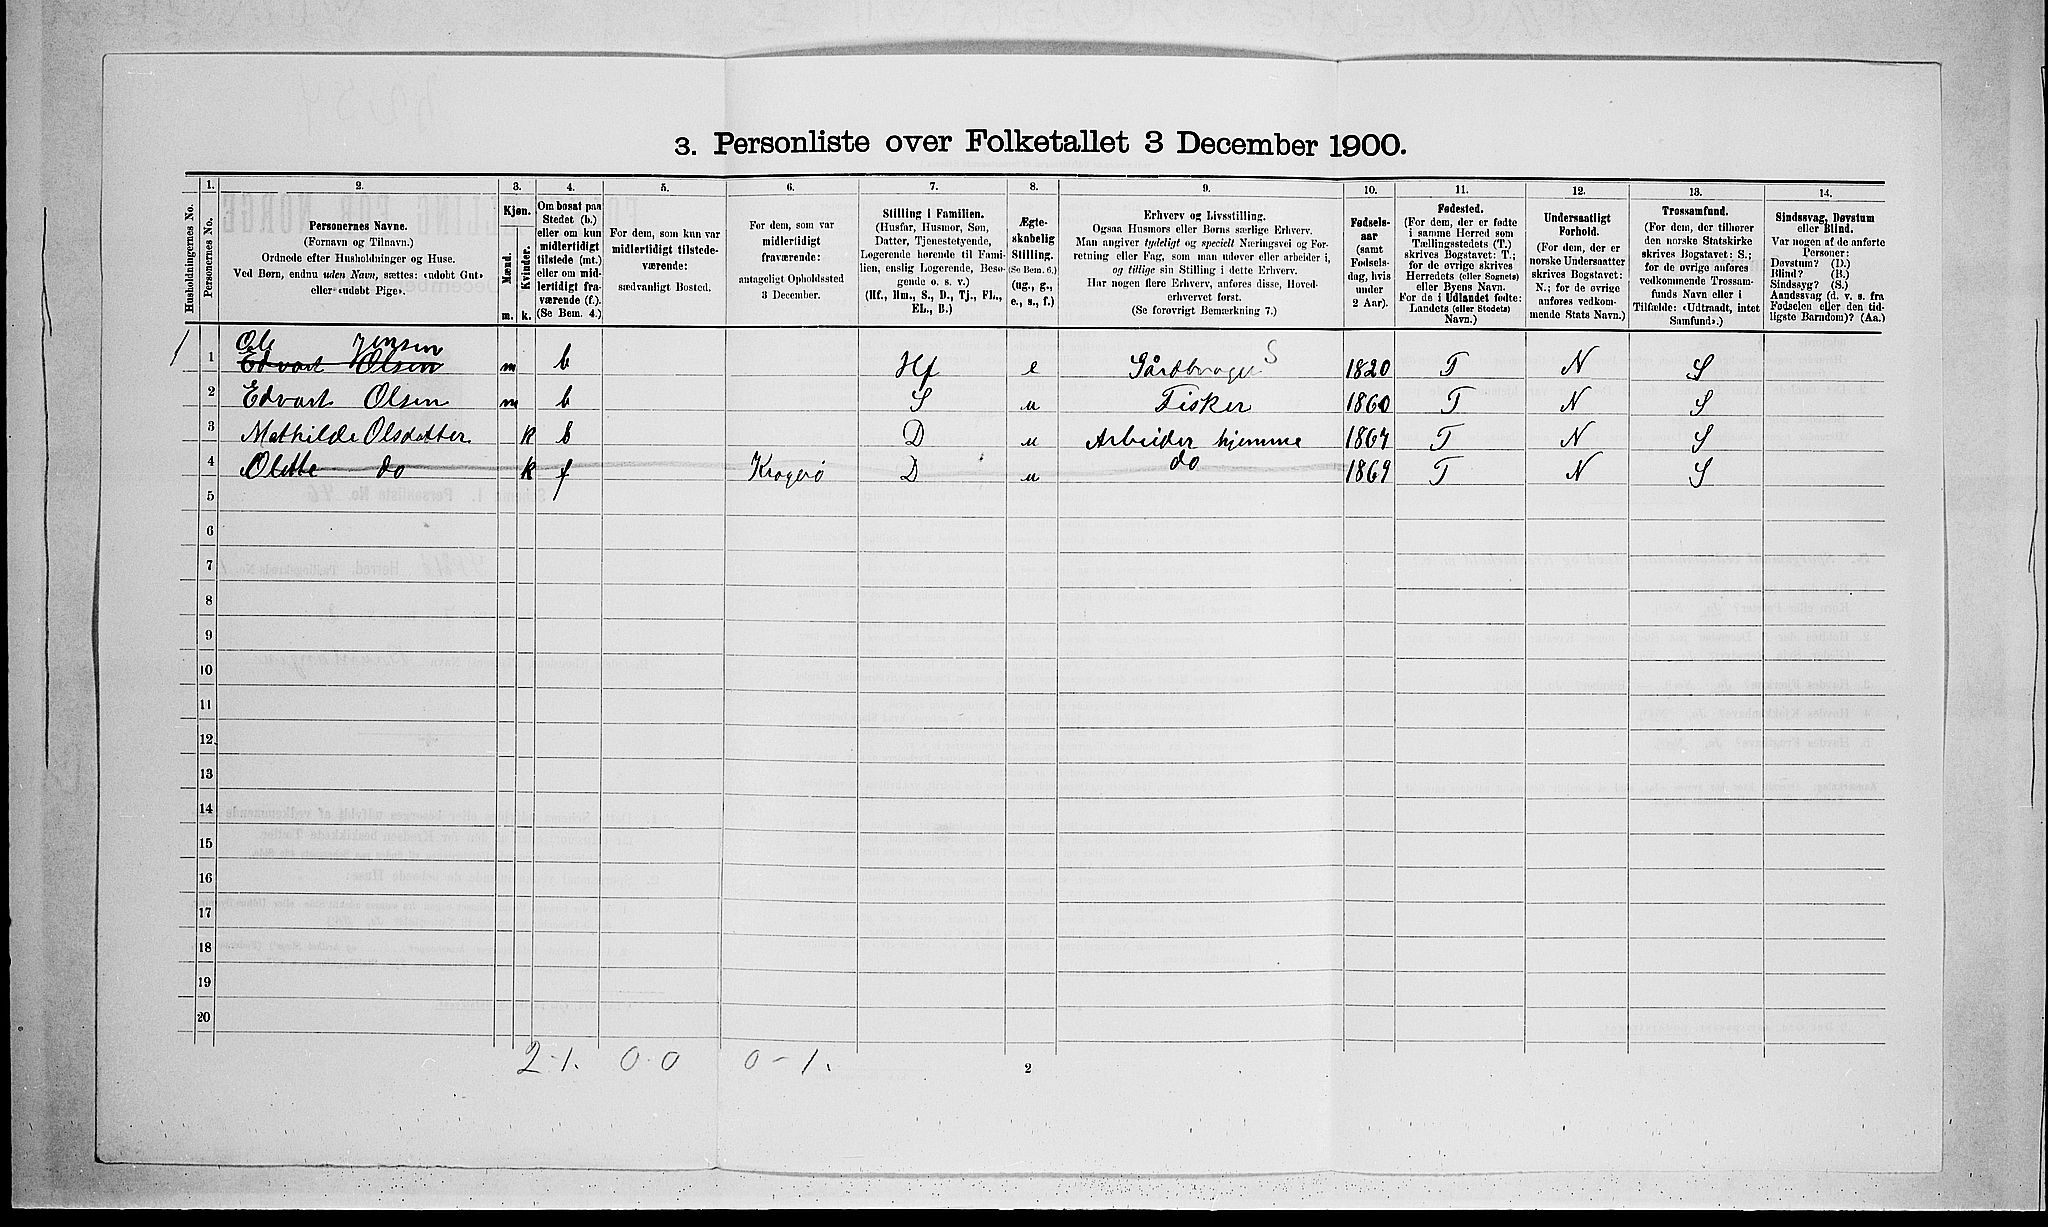 3. Personliste over Folketallet 3 December 1900.
Husholdningernes No.
1.
Personernes No.
2.
Personernes Navne.
(Fornavn og Tilnavn.)
Ordnede efter Husholdninger og Huse.
Ved Børn, endnu uden Navn, sættes: «udøbt Gut»
eller «udøbt Pige».
3.
Kjøn.
Mænd.
Kvinder.
m. k.
4.
Om bosat paa
Stedet (b.)
eller om kun
midlertidigt
tilstede (mt.)
eller om mid-
lertidigt fra-
værende (f.).
(Se Bem. 4.)
5.
For dem, som kun var
midlertidigt tilstede-
værende:
sædvanligt Bosted.
6.
For dem, som var
midlertidigt
fraværende:
antageligt Opholdssted
3 December.
7.
Stilling i Familien.
(Husfar, Husmor, Søn,
Datter, Tjenestetyende,
Logerende hørende til Fami-
lien, enslig Logerende, Besø-
gende o. s. v.)
(Hf., Hm., S., D., Tj., Fl.,
El., B.)
8.
Ægte-
skabelig
Stilling.
(Se Bem. 6.)
(ug., g.,
e., s., f.)
9.
Erhverv og Livsstilling.
Ogsaa Husmors eller Børns særlige Erhverv.
Man angiver tydeligt og specielt Næringsvei og For-
retning eller Fag, som man udøver eller arbeider i,
og tillige sin Stilling i dette Erhverv.
Har nogen flere Erhverv, anføres disse, Hoved-
erhvervet først.
(Se forøvrigt Bemærkning 7.)
10.
Fødsels-
aar
(samt
Fødsels-
dag, hvis
under
2 Aar).
11.
Fødested.
(For dem, der er fødte
i samme Herred som
Tællingsstedets (T.)
skrives Bogstavet: T.;
for de øvrige skrives
Herredets (eller Sognets)
eller Byens Navn.
For de i Udlandet fødte:
Landets (eller Stedets)
Navn.)
12.
Undersaatligt
Forhold.
(For dem, der er
norske Undersaatter
skrives Bogstavet:
N.; for de øvrige
anføres vedkom-
mende Stats Navn.)
13.
Trossamfund.
(For dem, der tilhører
den norske Statskirke
skrives Bogstavet: S.;
for de øvrige anføres
vedkommende Trossam-
funds Navn eller i
Tilfælde: «Udtraadt, intet
Samfund».)
14.
Sindssvag, Døvstum
eller Blind.
Var nogen af de anførte
Personer:
Døvstum? (D.)
Blind? (B.)
Sindssyg? (S.)
Aandssvag (d. v. s. fra
Fødselen eller den tid-
ligste Barndom)? (Aa.)
Ole Jensen
1 1 Edvart Olsen m b Hf e Gårdbruger S 1820 T N S
2 Edvart Olsen m b S u Fisker 1860 T N S
3 Mathilde Olsdatter k b D u Arbeider hjemme 1867 T N S
4 Olette do k f Kragerø D u do 1869 T N S
5
6
7
8
9
10
11
12
13
14
15
16
17
18
19
20
2-1. 0-0 0-1.
2